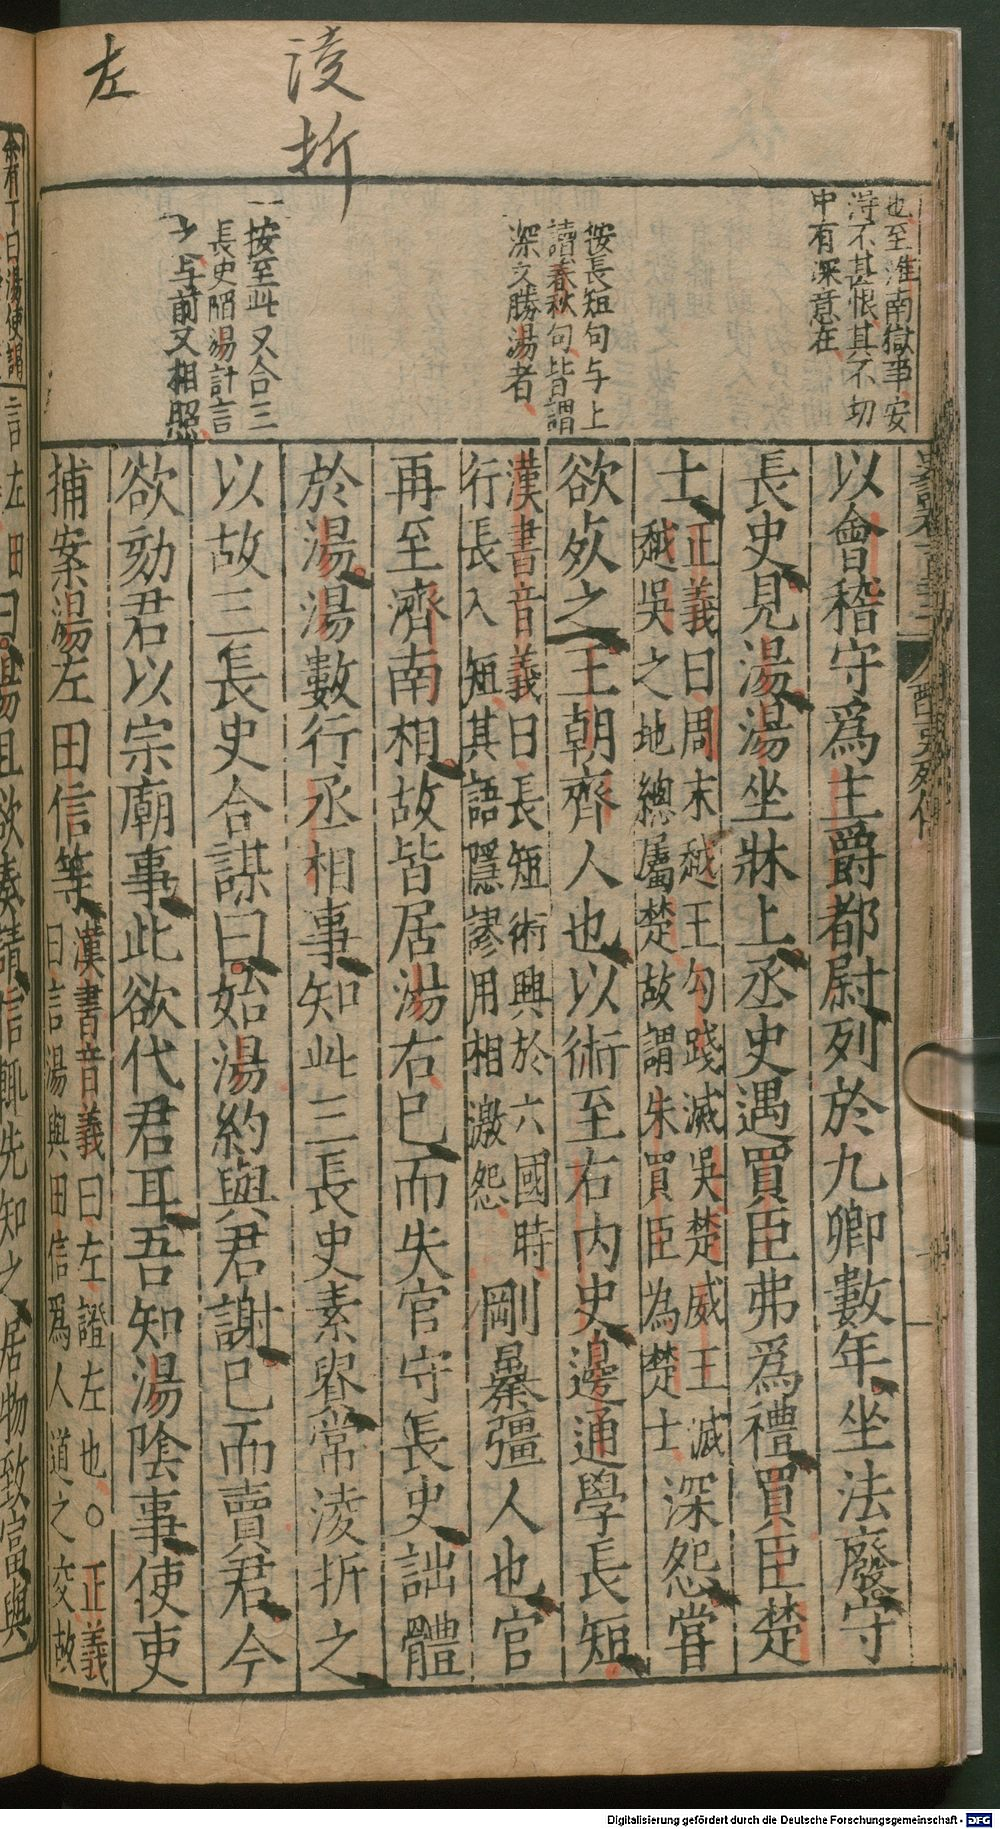 淩折
左
也至淮南獄事安
淂不甚恨其不切
中有深意在
按長短句与上
讀春秋句皆謂
深文勝湯者
按至此又合三
長史陷湯計言
与前又相照
酷吏列傳
以會稽守爲主爵都尉列於九卿數年坐法廢守
長史見湯湯坐牀上丞史遇買臣弗爲禮買臣楚
士正義曰周末越王勾踐滅吳楚威王滅
越吳之地總屬楚故謂朱買臣為楚士深怨甞
欲死之王朝齊人也以術至右內史邊通學長短
漢書音義曰長短術興於六國時
行長入短其語隱謬用相激怨剛暴彊人也官
再至濟南相故皆居湯右巳而失官守長史詘體
於湯湯數行丞相事知此三長史素貴常淩折之
以故三長史合謀曰始湯約與君謝巳而賣君今
欲劾君以宗廟事此欲代君耳吾知湯陰事使吏
捕案湯左田信等漢書音義曰左證左也〇正義
曰言湯與田信爲人道之交故
余有丁曰湯使謁
言左田曰湯且欲奏請信輒先知之居物致富與
Digitalisierung gefördert durch die Deutsche Forschungsgemeinschaft - DFG